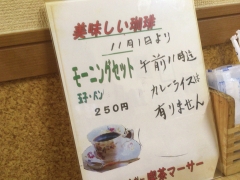 美味しい珈琲
11月1日より
モーニングセット
午前11時迄
玉子・パン
250円
カレーライスは
有りません
喫茶マーサー